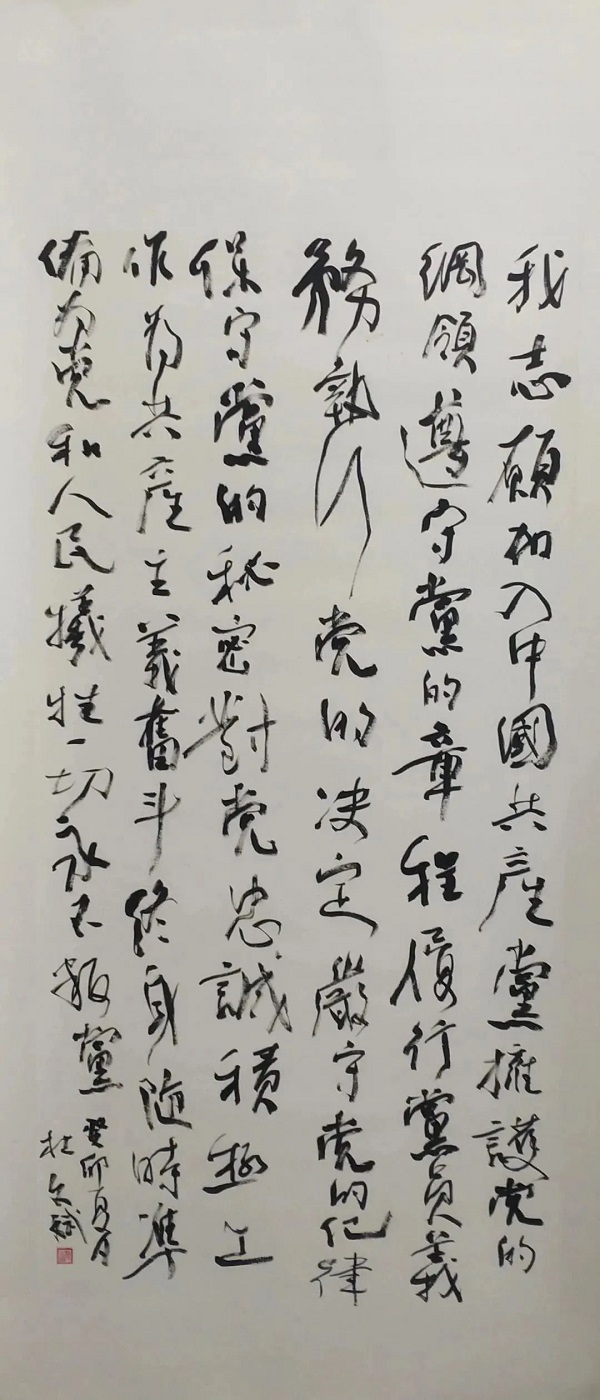 我志願加入中國共産黨擁護党的
綱領遵守黨的章程履行黨員義
務執行党的决定嚴守党的纪律
保守黨的秘密對党忠誠積極工
作为共産主義奮斗終身隨時準
備为党和人民犧牲一切永不叛黨
癸卯夏月
杜文斌